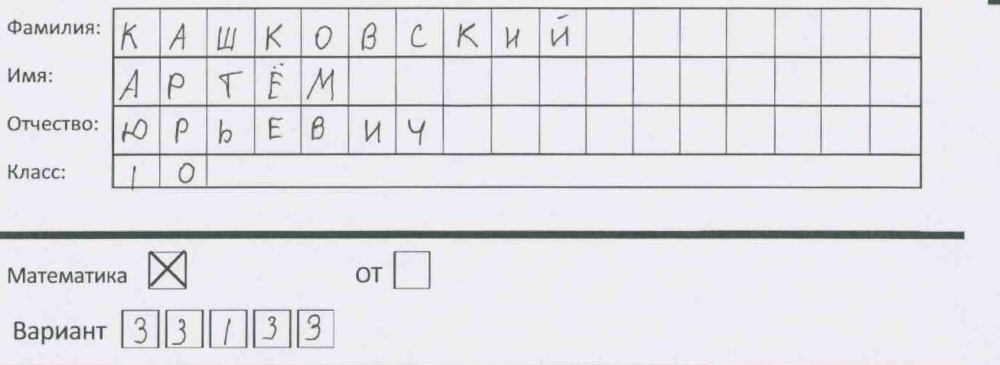 Фамилия: КАШКОВСКИЙ
Имя: АРТЁМ
Отчество: ЮРЬЕВИЧ
Класс: 10
Математика ☒ ОТ ☐
Вариант 33133